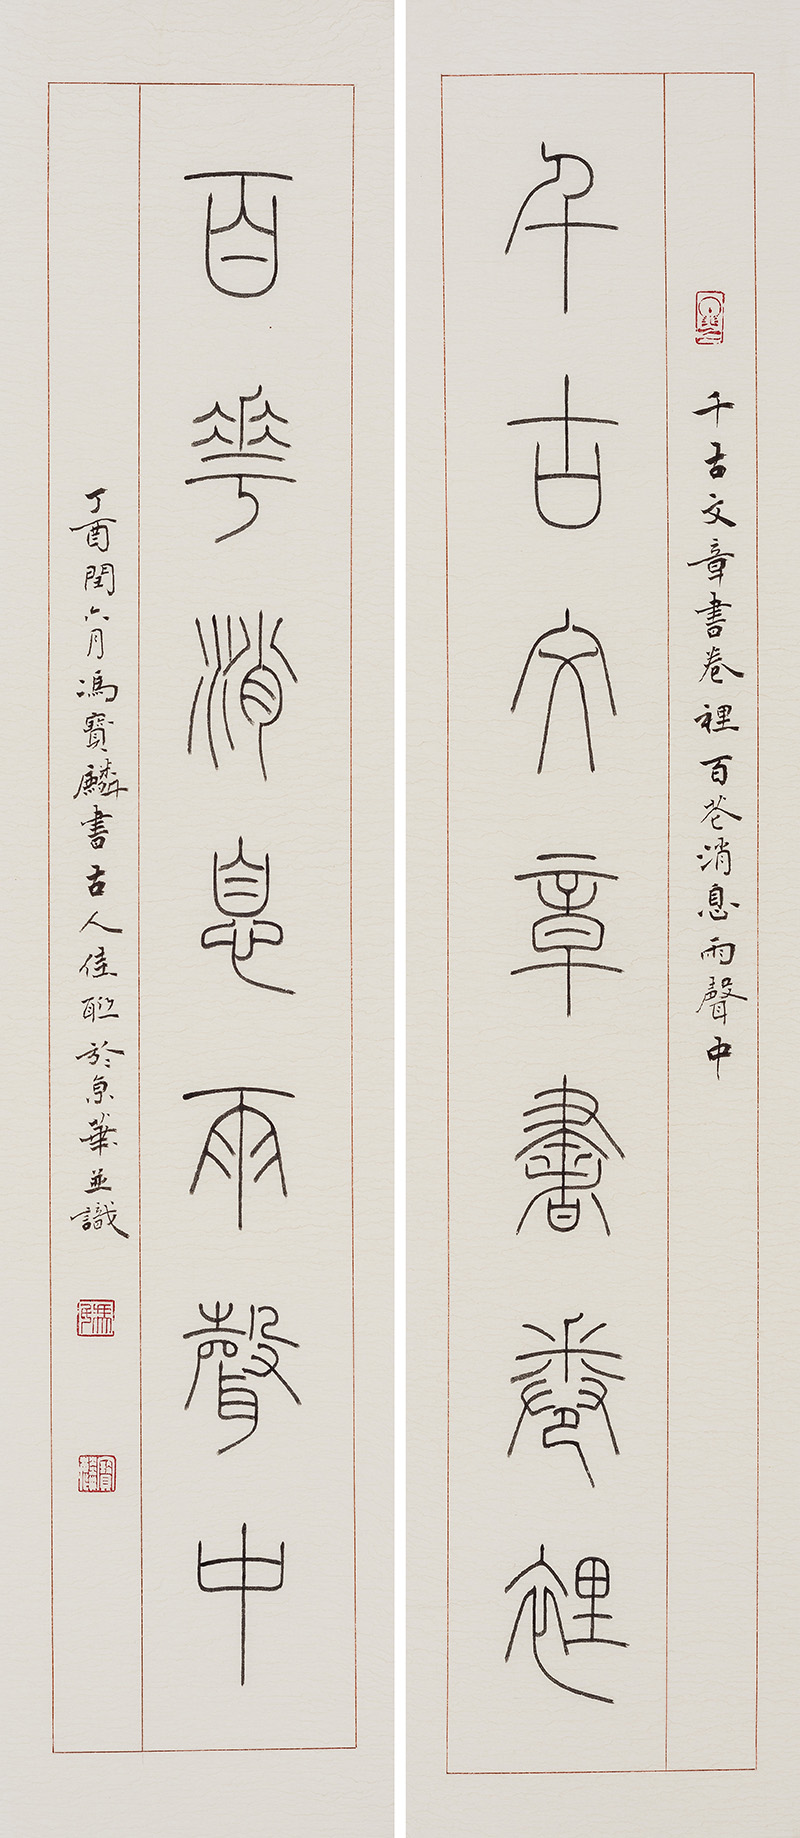 千古文章書卷裡百花消息雨聲中
千古文章書卷裡
百華消息雨聲中
丁酉閏六月馮寶麟書古人佳聯於京華並識